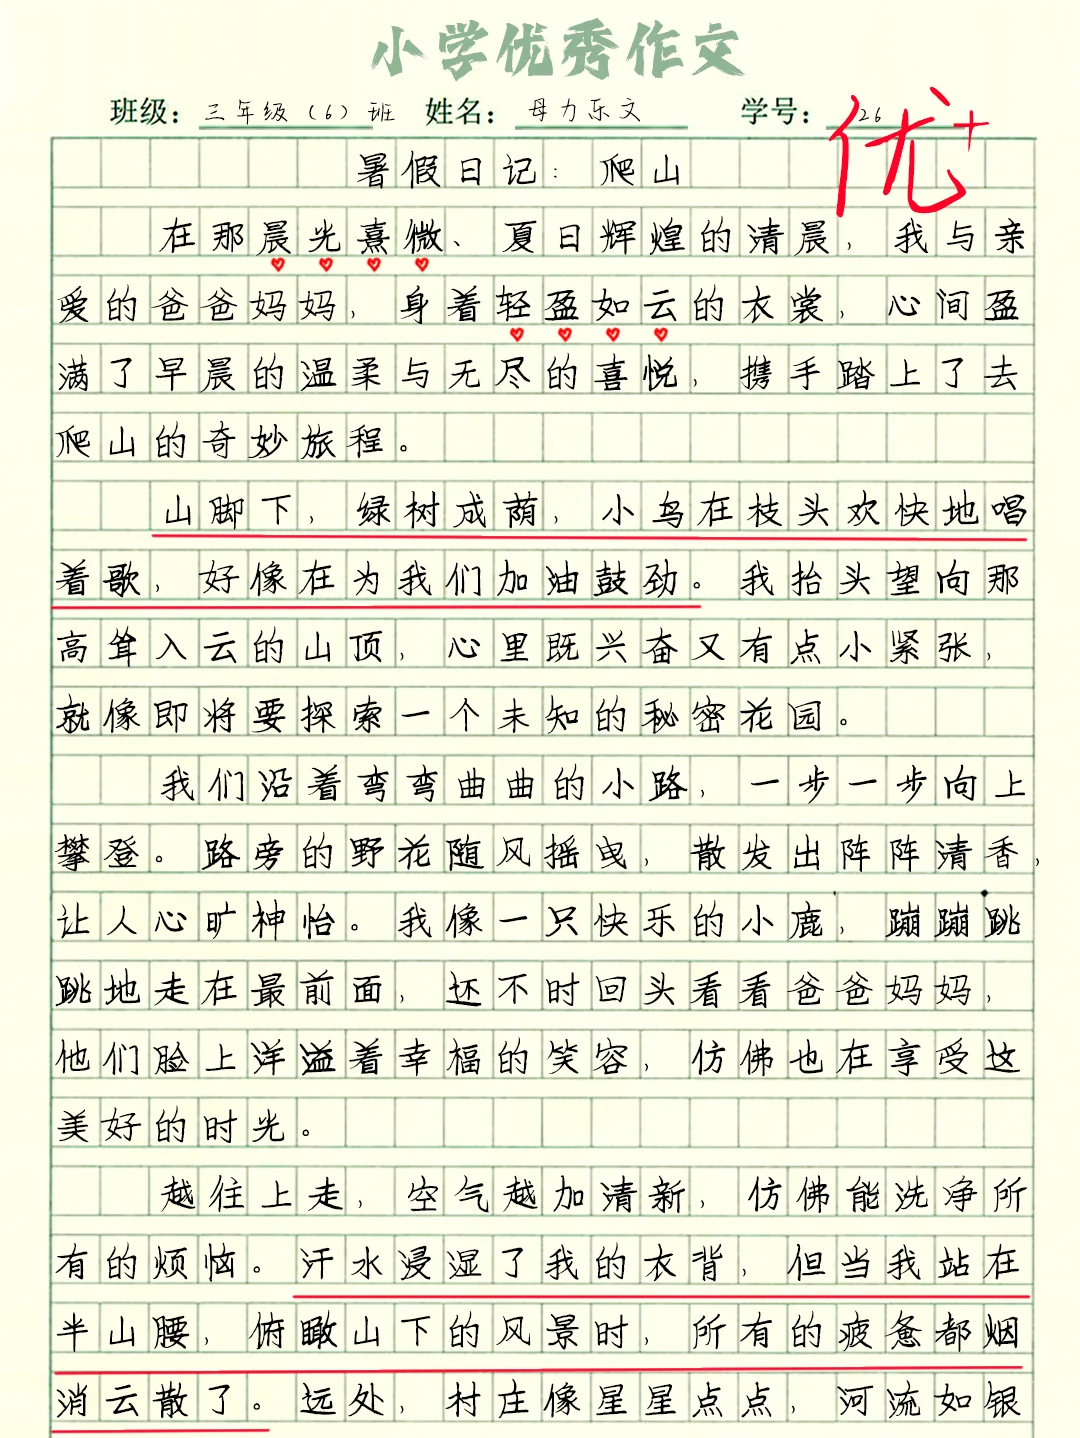 小学优秀作文
班级：三年级（6）班 姓名：母力乐文 学号：26
优+
暑假日记：爬山
在那晨光熹微、夏日辉煌的清晨，我与亲
爱的爸爸妈妈，身着轻盈如云的衣裳，心间盈
满了早晨的温柔与无尽的喜悦，携手踏上了去
爬山的奇妙旅程。
山脚下，绿树成荫，小鸟在枝头欢快地唱
着歌，好像在为我们加油鼓劲。我抬头望向那
高耸入云的山顶，心里既兴奋又有点小紧张，
就像即将要探索一个未知的秘密花园。
我们沿着弯弯曲曲的小路，一步一步向上
攀登。路旁的野花随风摇曳，散发出阵阵清香，
让人心旷神怡。我像一只快乐的小鹿，蹦蹦跳
跳地走在最前面，还不时回头看看爸爸妈妈，
他们脸上洋溢着幸福的笑容，仿佛也在享受这
美好的时光。
越往上走，空气越加清新，仿佛能洗净所
有的烦恼。汗水浸湿了我的衣背，但当我站在
半山腰，俯瞰山下的风景时，所有的疲惫都烟
消云散了。远处，村庄像星星点点，河流如银